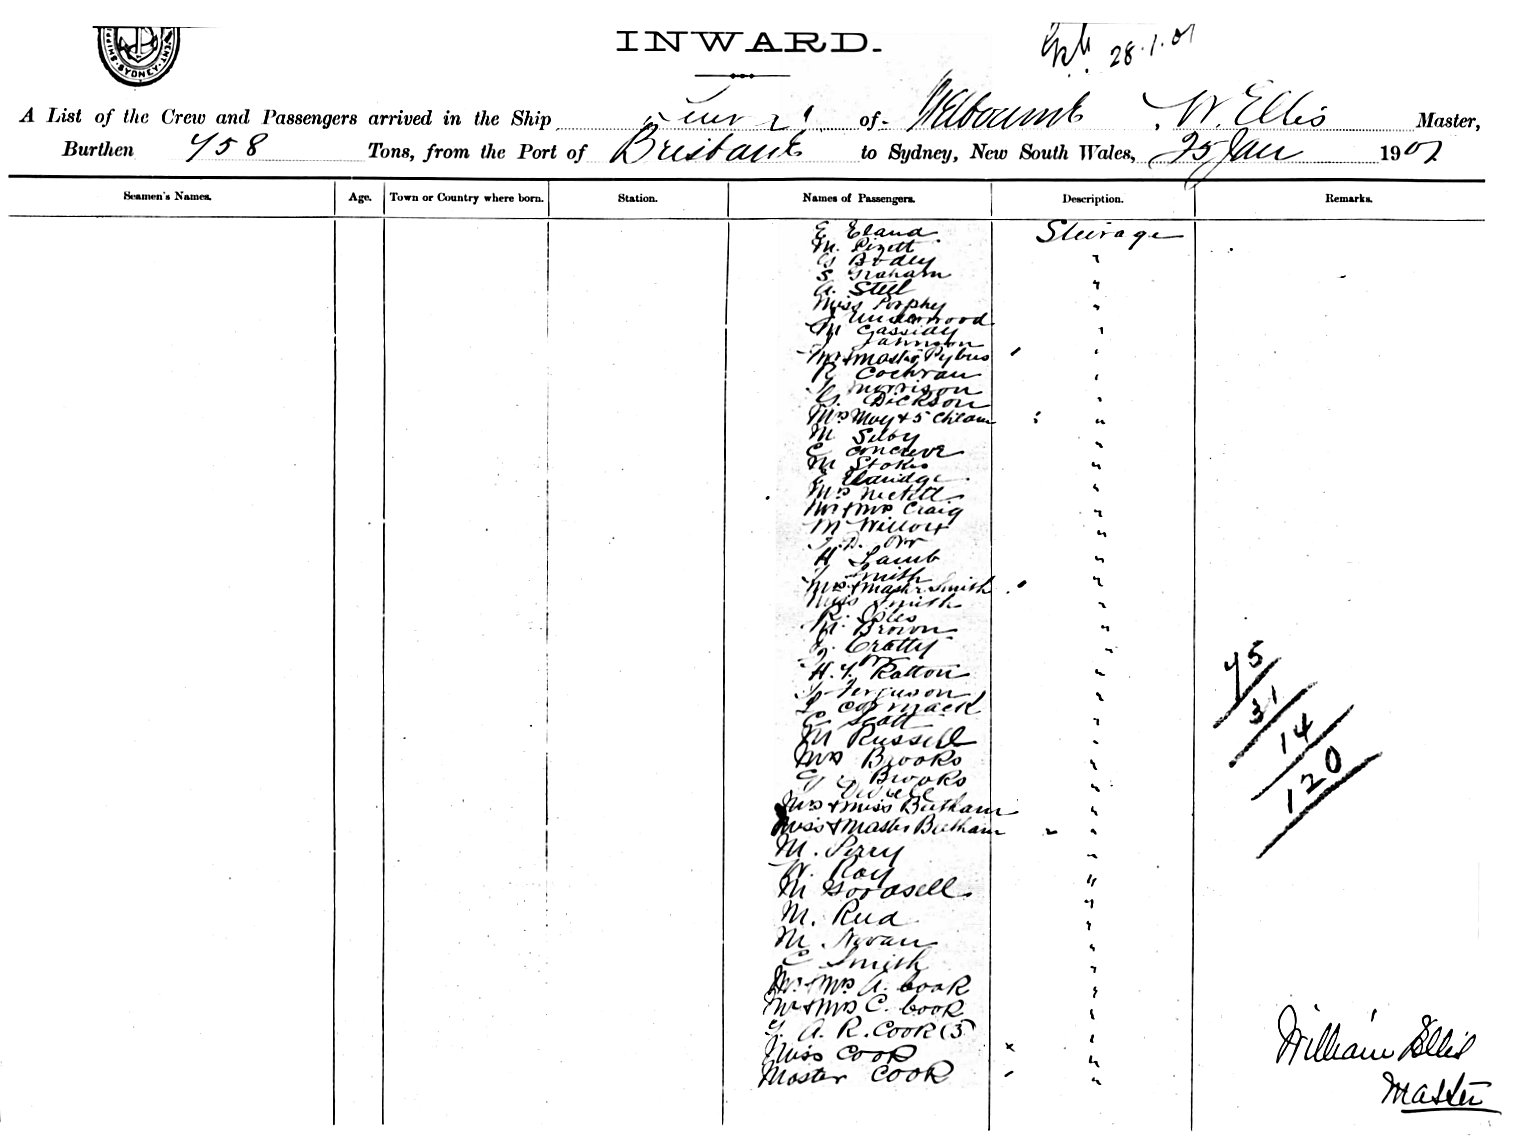 SYDNEY
INWARD.
28.1.01
A List of the Crew and Passengers arrived in the Ship of Melbourne W. Ellis Master,
Burthen 458 Tons, from the Port of Brisbane to Sydney, New South Wales, 25 Jan 190
Seamen's Names. Age. Town or Country where born. Station. Names of Passengers. Description. Remarks.
E Eland Steerage
M. "
G Bodey "
S. Graham "
A. Steel "
Miss Porphy "
J Underwood
M Cassidy "
J
Mrs + Master Pybus "
R Cochran "
Morrison
G. Dickson "
Mrs May + 5 Children "
M Selby "
C
M Stokes "
E Elaridge "
Mrs "
Mr + Mrs Craig "
M Willox "
J. D. Orr "
H Lamb "
J Smith
Mrs + Master Smith "
Miss Smith "
R. Isles
M Brown "
J. Cratty "
H. Y. Ratton "
J Ferguson "
L Cormack
C Scott "
M Russell "
Mrs Brooks "
G Brooks "
Mrs + Miss Beetham "
Miss + Master Beetham "
M. Perry "
W. Ray
M Goodsell "
M. Reid "
M
C Smith "
Mr + Mrs A. Cook "
Mr + Mrs C. Cook "
A. R. Cook (5 "
Miss Cook "
Master Cook "
45
31
14
120
William Ellis
Master